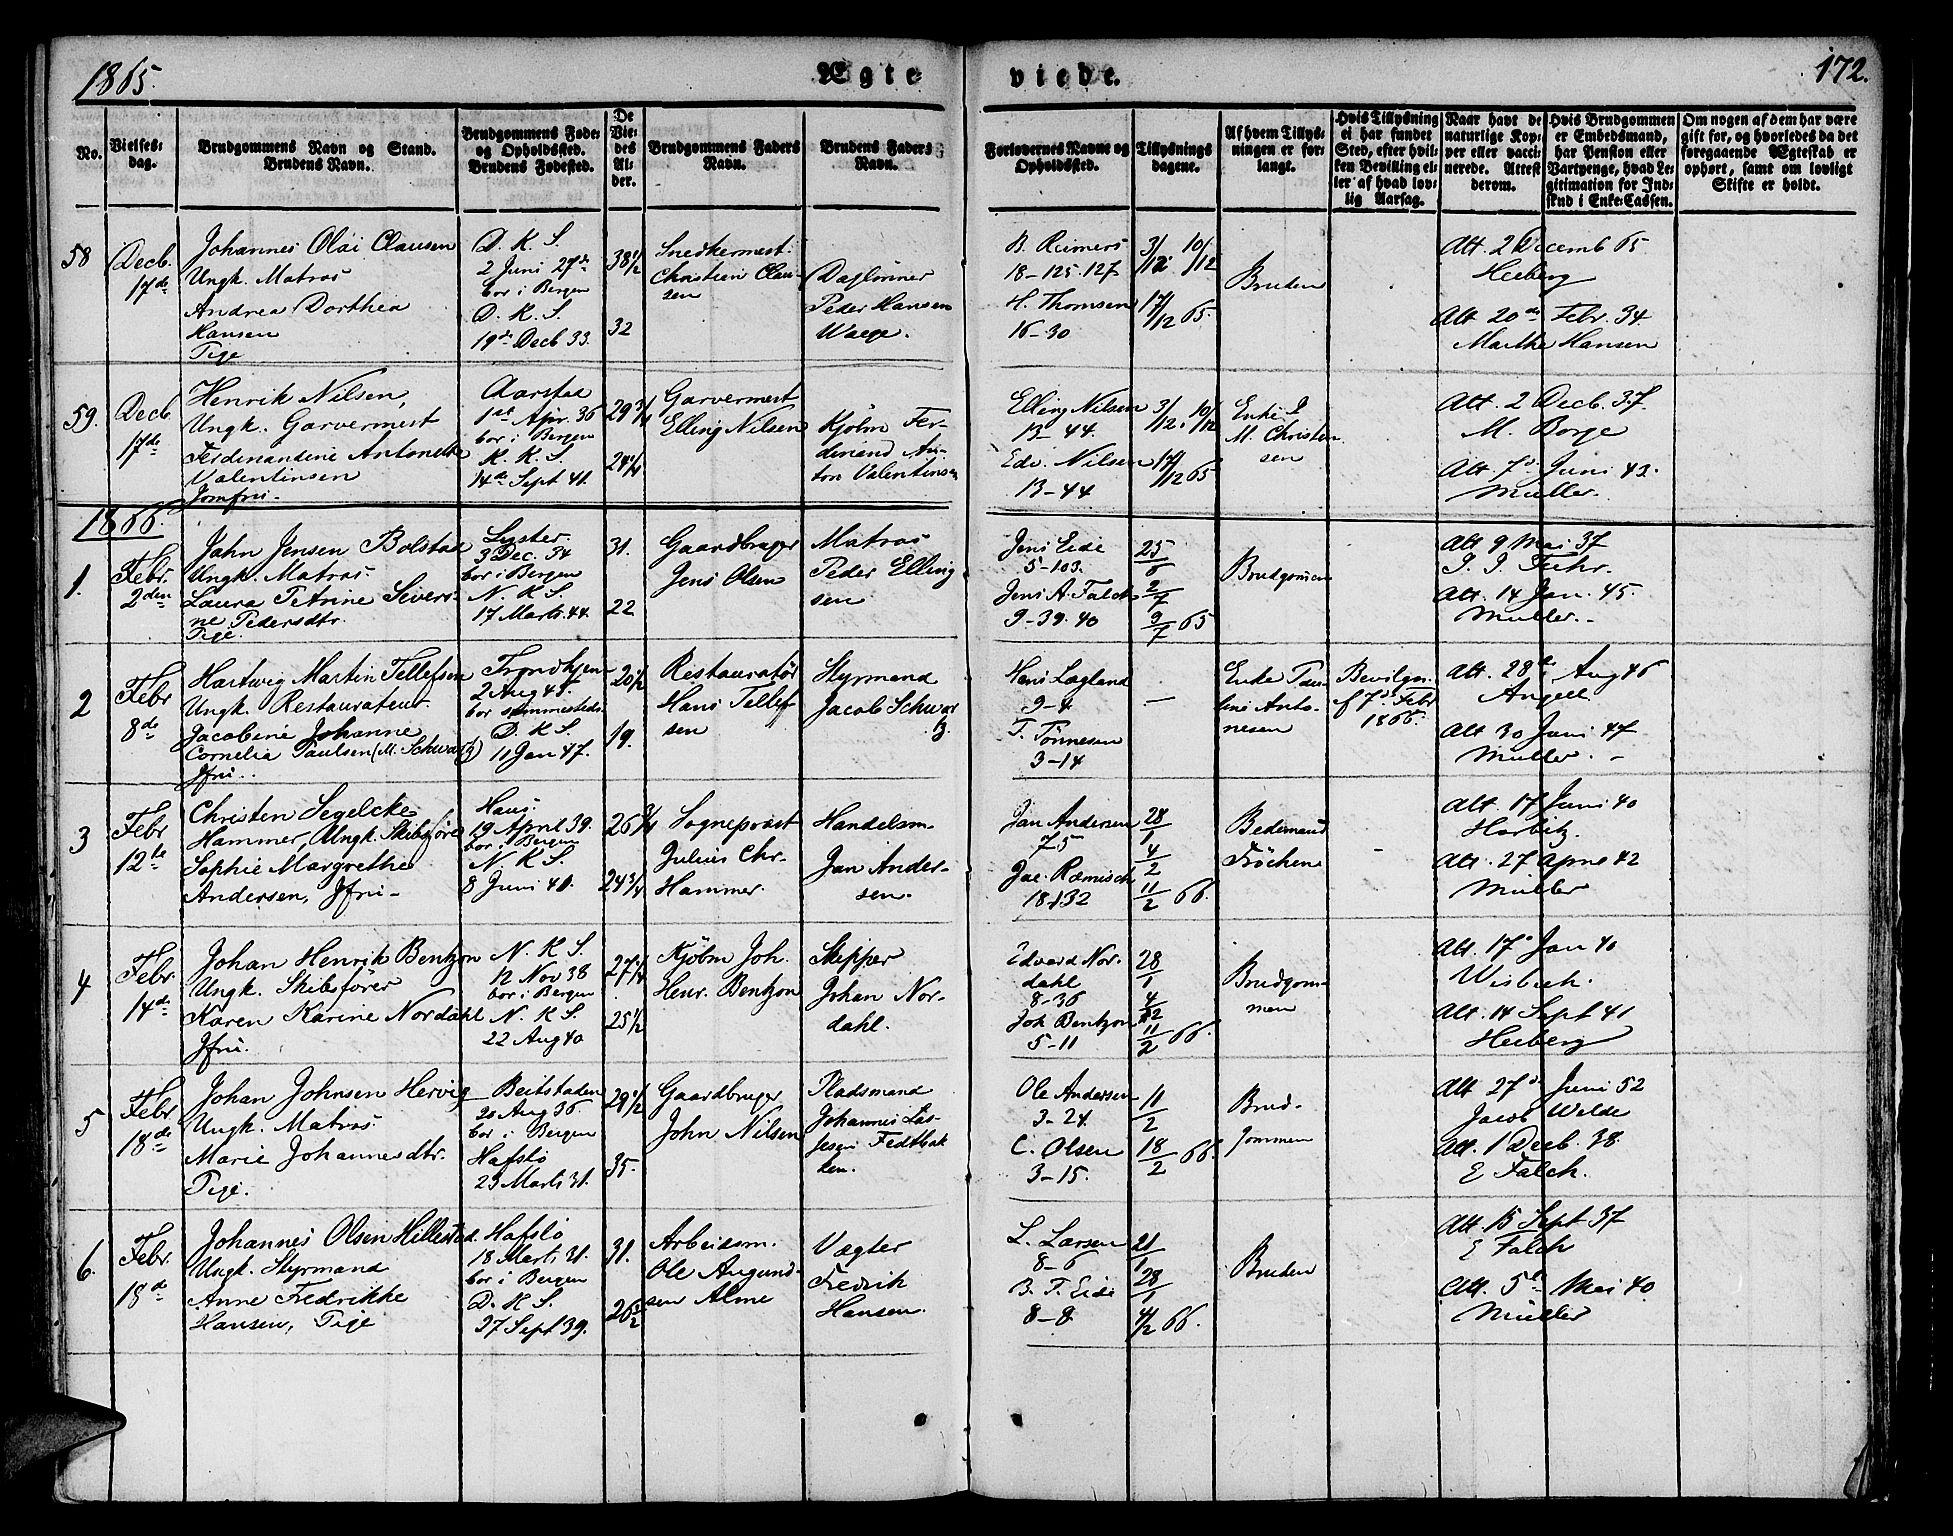 1865.
Ægte
viede.
172.
No.
Vielses-
dag.
Brudgommens Navn og Stand.
Brudens Navn.
Brudgommens Føde-
og Opholdssted.
Brudens Fødested.
De
Vie-
des
Al-
der.
Brudgommens Faders
Navn.
Brudens Faders
Navn.
Forlovernes Navne og
Opholdssted.
Tillysnings
dagene.
Af hvem Tillys-
ningen er for-
langt.
Hvis Tillysning
ei har fundet
Sted, efter hvil-
ken Bevilling el-
ler af hvad lov-
lig Aarsag.
Naar havt de
naturlige Kop-
per eller vacci-
nerede. Attest
derom.
Hvis Brudgommen
er Embedsmand,
har Pension eller
Vartpenge, hvad Le-
gitimation for Ind-
skud i Enke-Cassen.
Om nogen af dem har være
gift for, og hvorledes da det
foregaaende Ægteskab er
ophørt, samt om lovligt
Skifte er holdt.
58
Decb.
17de
Johannes Olai Clausen
Ungk. Matros
Andrea Dorthea
Hansen
Pige
D. K. S.
2 Juni 27de
bor i Bergen
D. K. S.
19de Decb 33.
38 1/2
32
Snedkermest.
Christen Clau-
sen
Daglönner
Peder Hansen
Wage.
B. Reimers
18-125.127
H. Thomsen
16-30
3/12 10/12
17/12 65.
Bruden
Att. 2 Decemb 65
Heiberg
Att 20de Febr. 34.
Marthe Hansen
59.
Decb
17de
Henrik Nilsen,
Ungk. Garvermest
Ferdinandine Antonette
Valentinsen
Jomfru.
Aarstad
1ste Apr. 36
bor i Bergen
K. K. S.
14de Sept 41.
29 3/4
24 1/4
Garvermest
Elling Nilsen
Kjöbm Fer-
dinand An-
ton Valentinsen
Elling Nilsen
13-44.
Edv. Nilsen
13-44
3/12. 10/12
17/12 65
Enke J
M. Christen
sen
Att. 2 Decb. 37.
M. Borge
Att. 7de Juni 43.
Müller.
1866.
1.
Febr.
2den
Jahn Jensen Bolstad
Ungk. Matros.
Laura Petrine Severi-
ne Pedersdtr.
Pige.
Lyster
3 Dec. 34
bor i Bergen
N. K. S.
17 Marts. 44.
31.
22
Gaardbruger
Jens Olsen
Matros
Peder Elling
sen
Jens Eide
5-103.
Jens A. Falch
9-39.40
25/6
2/7
9/7 65
Brudgomen
Att 9 Mai 37
J. J. Fuhr.
Att. 14 Jan. 45.
Müller.
2
Febr
8de
Hartwig Martin Tellefsen
Ungk. Restaurateur
Jacobine Johanne
Cornelia Paulsen (M. Schwartz)
Jfru.
Trondhjem
2 Aug 45.
bor sammesteds
D. K. S.
11 Jan 47.
20 1/2
19.
Restauratør
Hans Tellef
sen
Styrmand
Jacob Schwar
z.
Hans Lægland
9-4
T. Tönnesen
3-14
—
Enke Pau
line Anto-
nesen
Bevilgn.
f 7de Febr
1866.
Att. 28de Aug 46
Angell
Att. 30 Juni 47
Müller. -
3
Febr
12te
Christen Segelcke
Hammer, Ungk. Skibsfører
Sophie Margrethe
Andersen, Jfru-
Haus.
19 April 39.
bor i Bergen
N. K. S.
8 Juni 41.
26 3/4
24 3/4
Sogneprost
Julius Chr.
Hammer
Handelsm.
Jan Ander-
sen.
Jan Andersen
75
Jac. Ræmisch
18.132
28/1
4/2
11/2 66.
Bedemand
Tröchen
-
Att. 17 Juni 40
Horbitz.
Att. 27 April 42
Müller
4
Febr
14de
Johan Henrik Bentzon
Ungk. Skibsfører
Karen Karine Nordahl
Jfru.
N. K S.
12 Nov 38
bor i Bergen
N. K S.
22 Aug 40
27 1/4
25 1/2
Kjöbm Joh.
Henr. Bentzon
Skipper
Johan Nor-
dahl.
Edvard Nor-
dahl
8-36
Joh Bentzon
5-11
28/1
4/2
11/2 66.
Brudgom-
men
Att. 17de Jan 40
Wisbech.
Att. 14 Sept 41
Heiberg
5
Febr
18de
Johan Johnsen Hervig
Ungk. Matros.
Marie Johannesdtr.
Pige.
Beitstaden
20 Aug 36
bor i Bergen
Hafslö
23 Marts 31.
29 1/2
35.
Gaardbruger
John Nilsen
Pladsmand
Johannes Las-
sesen Fedtbak
ken.
Ole Andersen
3-24.
C. Olsen
3-15.
11/2
18/2 66.
Brud-
gommen
Att 27de Juni 52
Jacob Welde
Att. 1 Decb. 38.
E Falch.
6.
Febr.
18de
Johannes Olsen Hillestad
Ungk. Styrmand
Anne Fredrikke
Hansen, Pige
Hafslö
18 Marts 31.
bor i Bergen
D. K S.
27 Sept 39.
31.
26 1/2
Arbeidsm.
Ole Amund-
sen Alme
Vægter
Fredrik
Hansen.
L. Larsen
8-6
B. T. Eide
8-8
21/1
28/1
4/2 66.
Bruden
Att. 15 Sept 37
E Falch
Att. 5te Mai 40
Müller